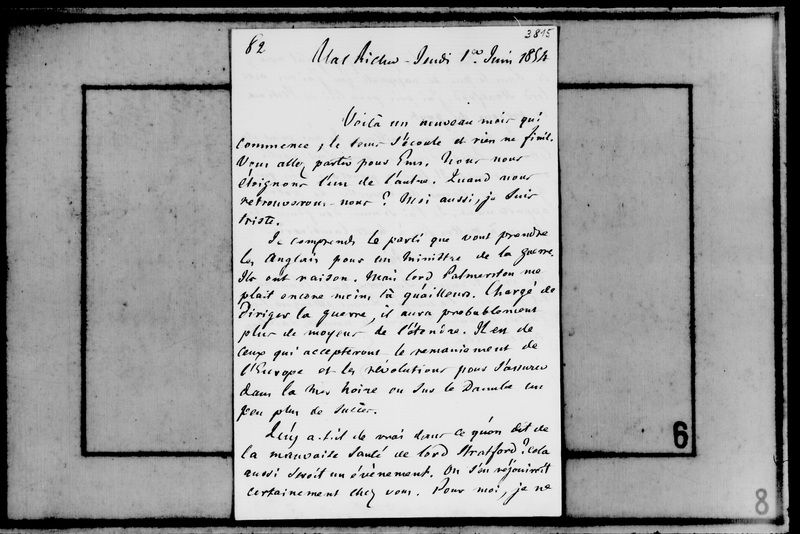 82
3815
Val Richer - Jeudi 1er Juin 1854
Voilà un nouveau mois qui
commence ; le tems s'écoule et rien ne finit.
Vous allez partir pour Ems. Nous nous
éloignons l'un de l'autre. Quand nous
retrouverons-nous ? Moi aussi, je suis
triste.
Je comprends le parti que vous prendre
les Anglais pour un ministre de la guerre.
Ils ont raison. Mais lord Palmerston me
plait encore moins là qu'ailleurs. Chargé de
diriger la guerre, il aura probablement
plus de moyens de l'étendre. Il est de
ceux qui accepteront le remaniement de
l'Europe et les révolutions pour s'assurer
dans la mer noire ou sur le Danube un
peu plus de succès.
Qu'y a-t-il de vrai dans ce qu'on dit de
la mauvaise santé de lord Stratford ? Cela
aussi seroit un événement. On s'en réjouiroit
certainement chez vous. Pour moi, je ne
6
8